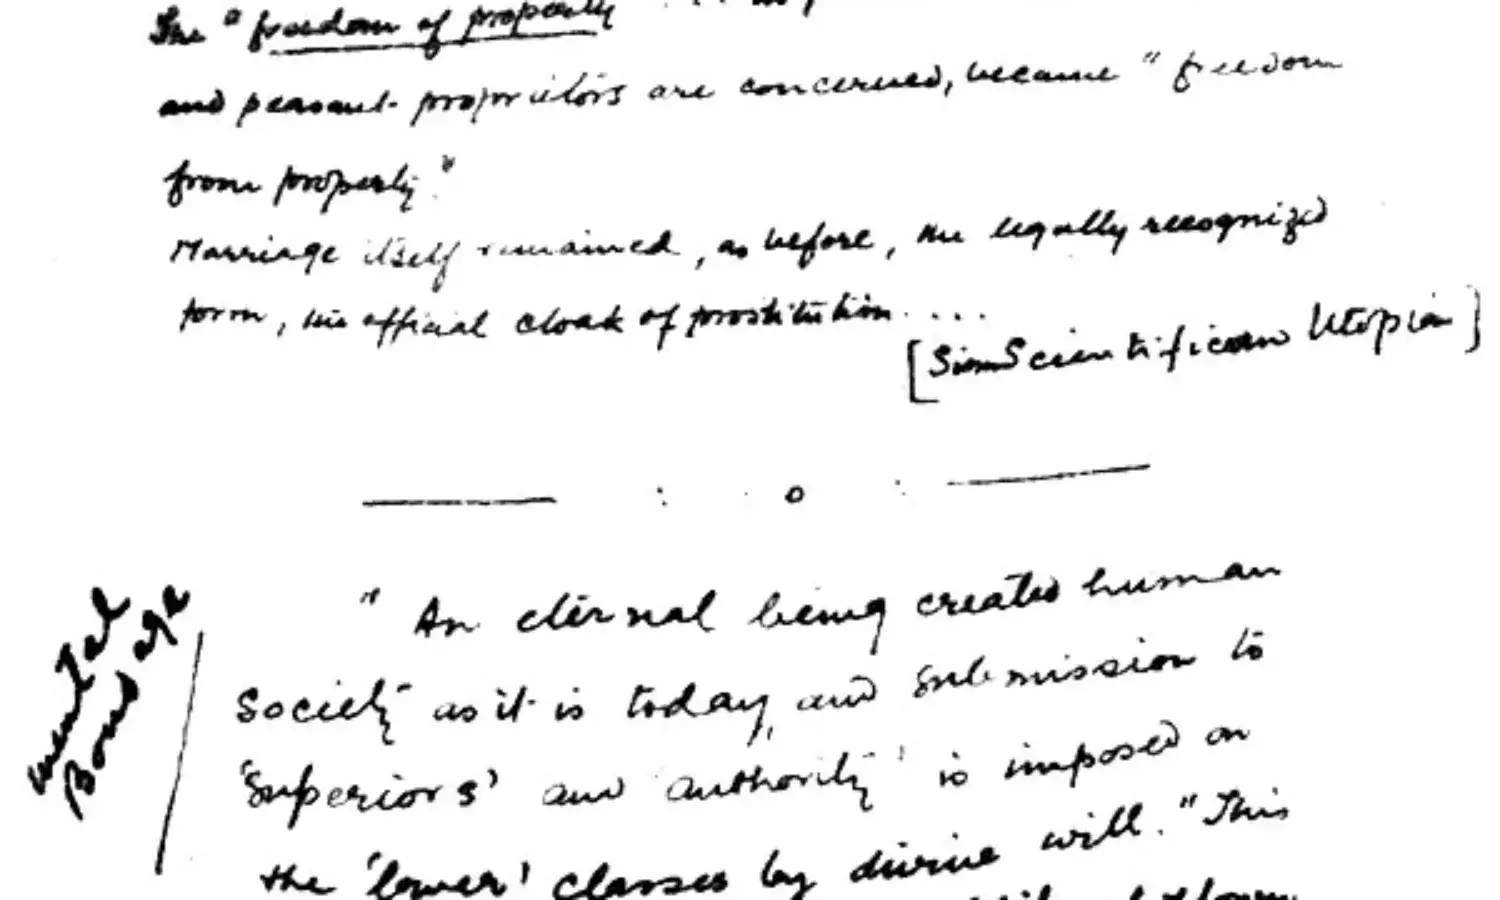 The "freedom of property
and peasant proprietors are concerned, became "freedom
from property."
Marriage itself remained, as before, the legally recognized
form, the official cloak of prostitution....
[Scientific Utopian]
: o :
mental
Bondage
"An eternal being created human
Society as it is today, and submission to
'superiors' and 'authority' is imposed on
the 'lower' classes by divine will." This